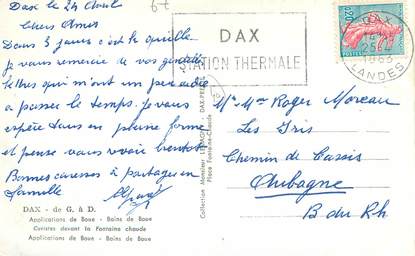 Dax le 24 Avril
67
Chers Amis
Dans 3 jours c'est la quille
je vous remercie de vos gentilles
lettres qui m'ont un peu aidé
a passer le temps. je vous
espère tous en pleine forme
et pense vous revoir bientot
Bonnes caresses à partager en
famille
DAX - de G. à D.
Applications de Boue - Bains de Boue
Curistes devant la Fontaine chaude
Applications de Boue - Bains de Boue
DAX
STATION THERMALE
Place Fontaine-Chaude
0,20
DAX
25-4
1963
LANDES
Mr Mme Roger Moreau
Les Iris
Chemin de Cassis
Aubagne
B du Rh